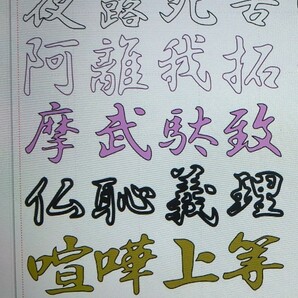 夜露死苦
阿離我拓
摩武駄致
仏恥義理
喧嘩上等